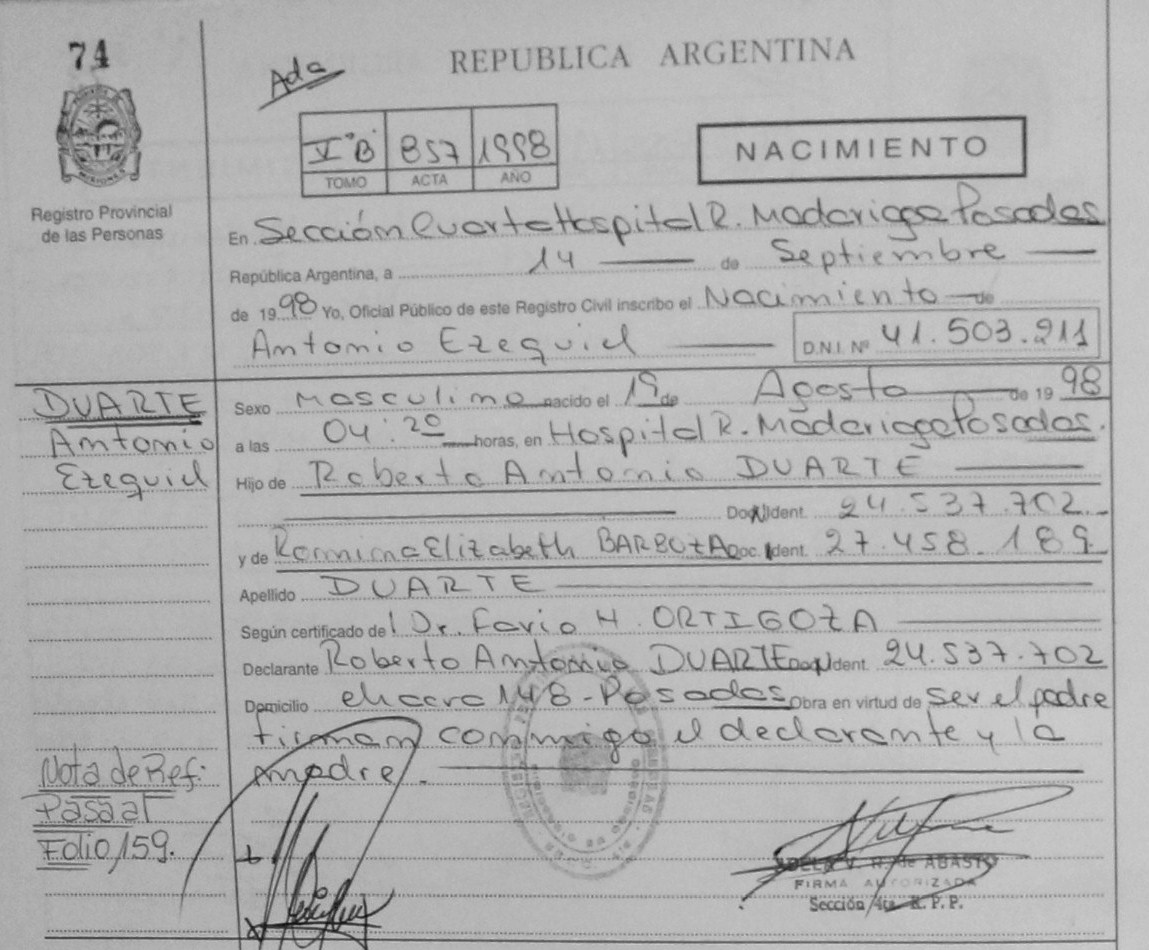 74
REPUBLICA ARGENTINA
Ada
V°B 857 1998
TOMO ACTA AÑO
NACIMIENTO
MISIONES
Registro Provincial
de las Personas
En Sección Cuarta Hospital R. Madariaga Posadas
República Argentina, a 14 de Septiembre
de 1998 Yo, Oficial Público de este Registro Civil inscribo el Nacimiento de
Antonio Ezequiel D.N.I. Nº 41.503.211
DUARTE
Antonio
Ezequiel
Sexo masculino nacido el 19 de Agosto de 1998
a las 04:20 horas, en Hospital R. Madariaga Posadas.
Hijo de Roberto Antonio DUARTE
Doc. Ident. 24.537.702
y de Elizabeth BARBOZA Doc. Ident. 27.458.189
Apellido DUARTE
Según certificado del Dr. Favio H. ORTIGOZA
Declarante Roberto Antonio DUARTE Doc. Ident. 24.537.702
Domicilio 148 - Posadas Obra en virtud de ser el padre
firman conmigo el declarante y la
madre.
Nota de Ref:
Pasa al
Folio 159.
V. H. de ABASTO
FIRMA AUTORIZADA
Sección 4ta. R. P. P.